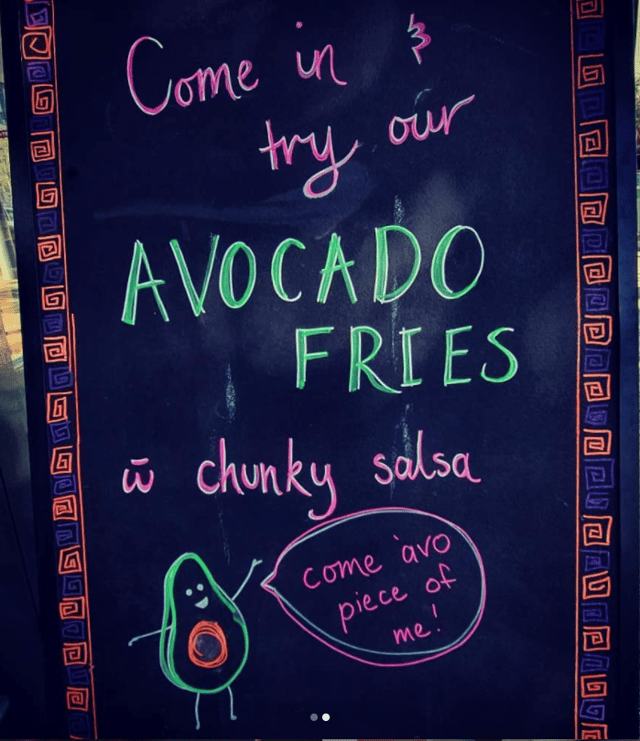 Come in &
try our
AVOCADO
FRIES
w̄ chunky salsa
come 'avo
piece of
me!